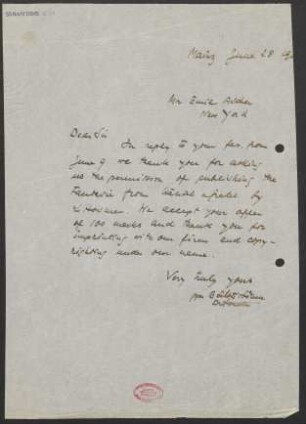 Mainz June 28
Mr Emil Ascher
New York
Dear Sir
In reply to your fav. from
June 9 we thank you for asking
us the permission of publishing the
Fantasia from by
. We accept your offer
of 100 marks and thank you for
imprinting with our firm and copy-
righting under our name.
Very truly yours